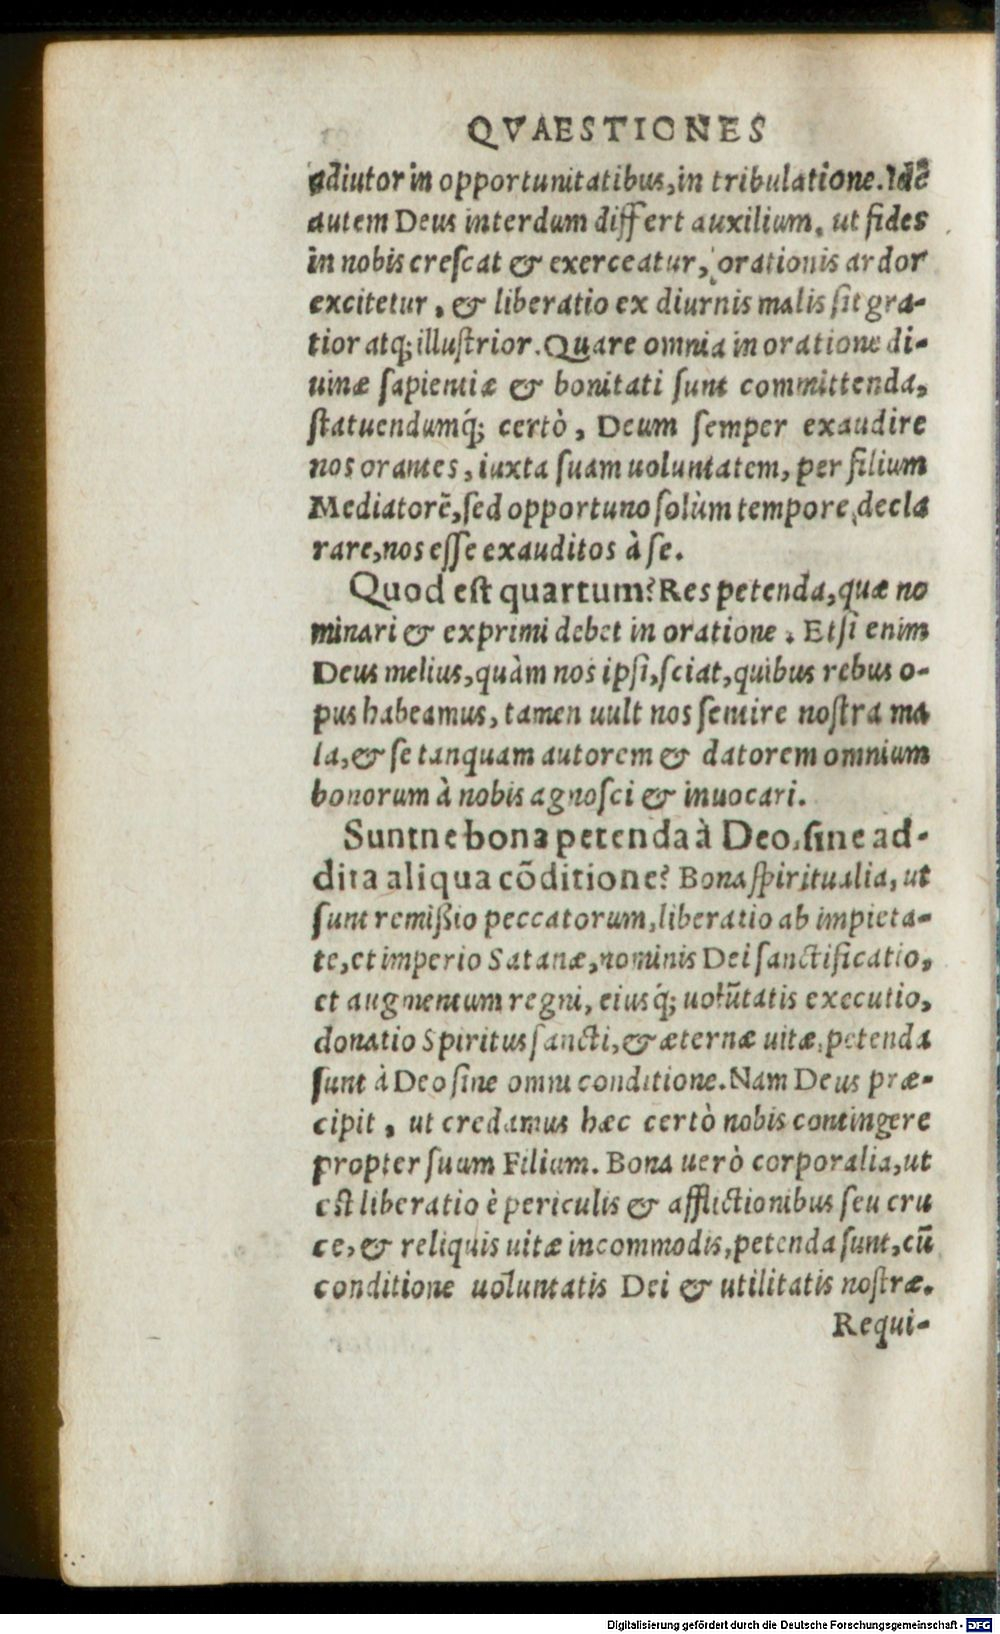 QVAESTIONES
adiutor in opportunitatibus, in tribulatione. Idẽ
autem Deus interdum differt auxilium, ut fides
in nobis crescat & exerceatur, orationis ardor
excitetur, & liberatio ex diurnis malis sit gra-
tior atq; illustrior. Quare omnia in oratione di-
uinæ sapientiæ & bonitati sunt committenda,
statuendumq́; certò, Deum semper exaudire
nos orantes, iuxta suam uoluntatem, per filium
Mediatorẽ, sed opportuno solùm tempore decla
rare, nos esse exauditos à se.
Quod est quartum? Res petenda, quæ no
minari & exprimi debet in oratione. Etsi enim
Deus melius, quàm nos ipsi, sciat, quibus rebus o-
pus habeamus, tamen uult nos sentire nostra ma
la, & se tanquam autorem & datorem omnium
bonorum à nobis agnosci & inuocari.
Suntne bona petenda à Deo, sine ad-
dita aliqua cõditione? Bona spiritualia, ut
sunt remißio peccatorum, liberatio ab impieta-
te, et imperio Satanæ, nominis Dei sanctificatio,
et augmentum regni, eiusq́; uolũtatis executio,
donatio Spiritus sancti, & æternæ uitæ, petenda
sunt à Deo sine omni conditione. Nam Deus præ-
cipit, ut credamus hæc certò nobis contingere
propter suum Filium. Bona uerò corporalia, ut
est liberatio è periculis & afflictionibus seu cru
ce, & reliquis uitæ incommodis, petenda sunt, cũ
conditione uoluntatis Dei & utilitatis nostræ.
Requi-
Digitalisierung gefördert durch die Deutsche Forschungsgemeinschaft - DFG